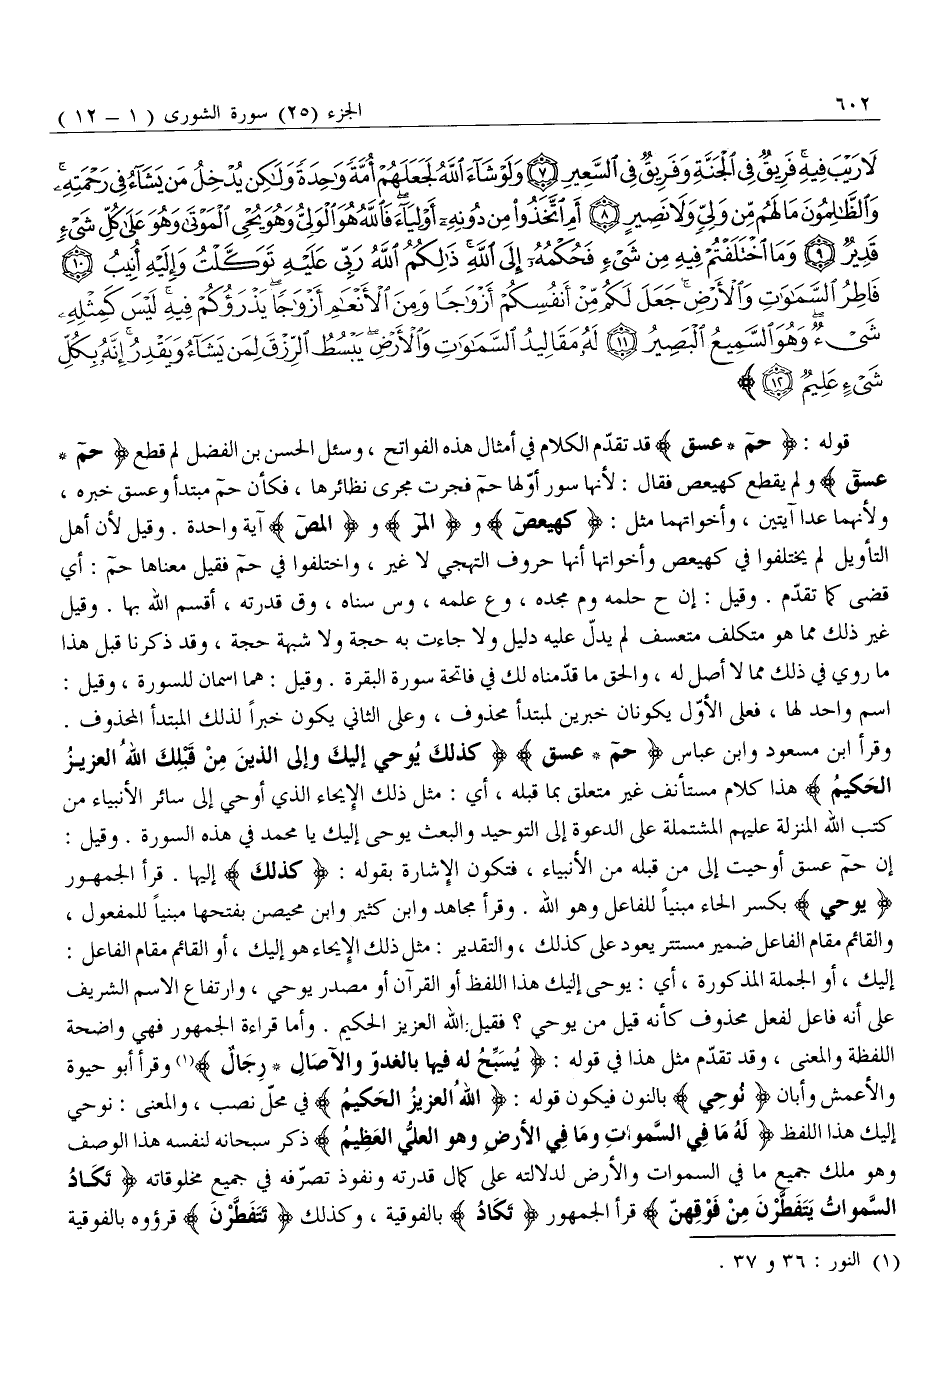 ٦٠٢
الجزء (٢٥) سورة الشورى ( ١ – ١٢ )
لَا رَيْبَ فِيهِ ۚ فَرِيقٌ فِي الْجَنَّةِ وَفَرِيقٌ فِي السَّعِيرِ ﴿٧﴾ وَلَوْ شَاءَ اللَّهُ لَجَعَلَهُمْ أُمَّةً وَاحِدَةً وَلَٰكِن يُدْخِلُ مَن يَشَاءُ فِي رَحْمَتِهِ ۚ
وَالظَّالِمُونَ مَا لَهُم مِّن وَلِيٍّ وَلَا نَصِيرٍ ﴿٨﴾ أَمِ اتَّخَذُوا مِن دُونِهِ أَوْلِيَاءَ ۖ فَاللَّهُ هُوَ الْوَلِيُّ وَهُوَ يُحْيِي الْمَوْتَىٰ وَهُوَ عَلَىٰ كُلِّ شَيْءٍ
قَدِيرٌ ﴿٩﴾ وَمَا اخْتَلَفْتُمْ فِيهِ مِن شَيْءٍ فَحُكْمُهُ إِلَى اللَّهِ ۚ ذَٰلِكُمُ اللَّهُ رَبِّي عَلَيْهِ تَوَكَّلْتُ وَإِلَيْهِ أُنِيبُ ﴿١٠﴾
فَاطِرُ السَّمَاوَاتِ وَالْأَرْضِ ۚ جَعَلَ لَكُم مِّنْ أَنفُسِكُمْ أَزْوَاجًا وَمِنَ الْأَنْعَامِ أَزْوَاجًا ۖ يَذْرَؤُكُمْ فِيهِ ۚ لَيْسَ كَمِثْلِهِ
شَيْءٌ ۖ وَهُوَ السَّمِيعُ الْبَصِيرُ ﴿١١﴾ لَهُ مَقَالِيدُ السَّمَاوَاتِ وَالْأَرْضِ ۖ يَبْسُطُ الرِّزْقَ لِمَن يَشَاءُ وَيَقْدِرُ ۚ إِنَّهُ بِكُلِّ
شَيْءٍ عَلِيمٌ ﴿١٢﴾ ﴾
قوله : ﴿ حمٓ * عسق ﴾ قد تقدّم الكلام في أمثال هذه الفواتح ، وسئل الحسن بن الفضل لم قطع ﴿ حمٓ *
عسقٓ ﴾ ولم يقطع كهيعص فقال : لأنها سور أوّلها حمٓ فجرت مجرى نظائرها ، فكأن حمٓ مبتدأ وعسق خبره ،
ولأنهما عدا آيتين ، وأخواتهما مثل : ﴿ كهيعصٓ ﴾ و ﴿ المٓر ﴾ و ﴿ المٓصٓ ﴾ آية واحدة . وقيل لأن أهل
التأويل لم يختلفوا في كهيعص وأخواتها أنها حروف التهجي لا غير ، واختلفوا في حمٓ فقيل معناها حمٓ : أي
قضى كما تقدّم . وقيل : إن ح حلمه وم مجده ، وع علمه ، وس سناه ، وق قدرته ، أقسم الله بها . وقيل
غير ذلك مما هو متكلف متعسف لم يدلّ عليه دليل ولا جاءت به حجة ولا شبهة حجة ، وقد ذكرنا قبل هذا
ما روي في ذلك مما لا أصل له ، والحق ما قدّمناه لك في فاتحة سورة البقرة . وقيل : هما اسمان للسورة ، وقيل :
اسم واحد لها ، فعلى الأوّل يكونان خبرين لمبتدأ محذوف ، وعلى الثاني يكون خبراً لذلك المبتدأ المحذوف .
وقرأ ابن مسعود وابن عباس ﴿ حمٓ * عسق ﴾ ﴿ كذلك يُوحي إليك وإلى الذينَ مِنْ قَبْلِكَ اللهُ العزيـزُ
الحَكيمُ ﴾ هذا كلام مستأنف غير متعلق بما قبله ، أي : مثل ذلك الإيحاء الذي أوحي إلى سائر الأنبياء من
كتب الله المنزلة عليهم المشتملة على الدعوة إلى التوحيد والبعث يوحى إليك يا محمد في هذه السورة . وقيل :
إن حمٓ عسق أوحيت إلى من قبله من الأنبياء ، فتكون الإشارة بقوله : ﴿ كذلكَ ﴾ إليها . قرأ الجمهـور
﴿ يوحي ﴾ بكسر الحاء مبنياً للفاعل وهو الله . وقرأ مجاهد وابن كثير وابن محيصن بفتحها مبنياً للمفعول ،
والقائم مقام الفاعل ضمير مستتر يعود على كذلك ، والتقدير : مثل ذلك الإيحاء هو إليك ، أو القائم مقام الفاعل :
إليك ، أو الجملة المذكورة ، أي : يوحى إليك هذا اللفظ أو القرآن أو مصدر يوحي ، وارتفاع الاسم الشريف
على أنه فاعل لفعل محذوف كأنه قيل من يوحي ؟ فقيل : الله العزيز الحكيم . وأما قراءة الجمهور فهي واضحة
اللفظة والمعنى ، وقد تقدّم مثل هذا في قوله : ﴿ يُسَبِّحُ له فيها بالغدوّ والآصَالِ * رِجَالٌ ﴾(١) وقرأ أبو حيوة
والأعمش وأبان ﴿ نُوحِي ﴾ بالنون فيكون قوله : ﴿ اللهُ العزيزُ الحَكيمُ ﴾ في محلّ نصب ، والمعنى : نوحي
إليك هذا اللفظ ﴿ لَهُ مَا فِي السَّمواتِ ومَا فِي الأرضِ وهو العليُّ العَظِيمُ ﴾ ذكر سبحانه لنفسه هذا الوصف
وهو ملك جميع ما في السموات والأرض لدلالته على كمال قدرته ونفوذ تصرّفه في جميع مخلوقاته ﴿ تَكَـادُ
السَّمواتُ يَتَفَطَّرْنَ مِنْ فَوْقِهِنَّ ﴾ قرأ الجمهور ﴿ تَكَادُ ﴾ بالفوقية ، وكذلك ﴿ تَتَفَطَّرْنَ ﴾ قرؤوه بالفوقية
(١) النور : ٣٦ و ٣٧ .